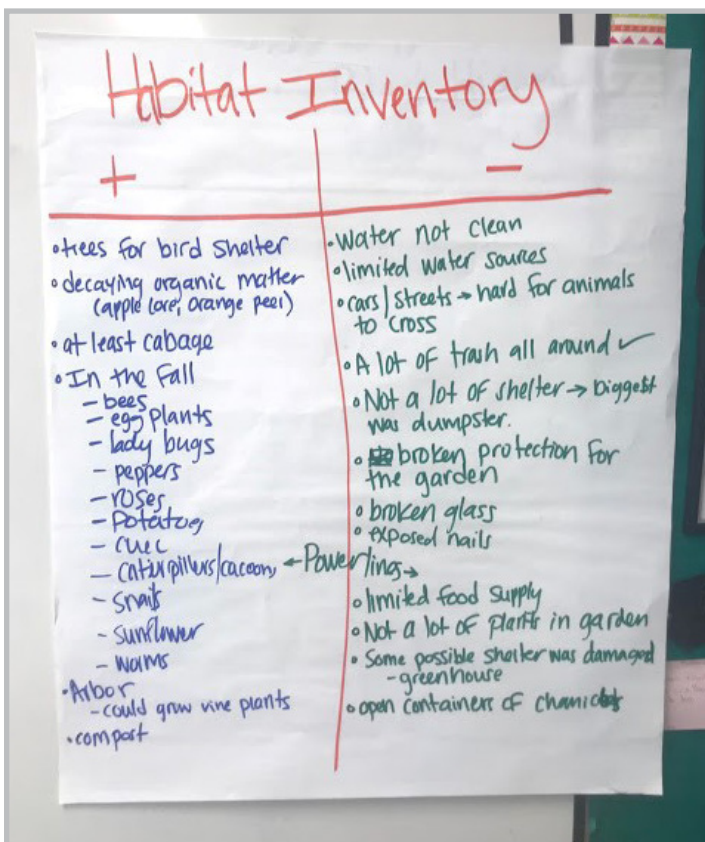 Habitat Inventory
+
•trees for bird shelter
•decaying organic matter
(apple core, orange peel)
•at least cabage
•In the Fall
- bees
- egg plants
- lady bugs
- peppers
- roses
- potatoes
- caturpillers/cacoons
- snails
- sunflower
- worms
•Arbor
- could grow vine plants
•compost
← Powerlines →
-
•Water not clean
•limited water sources
•cars/streets → hard for animals
to cross
•A lot of trash all around ✓
•Not a lot of shelter → biggest
was dumpster.
•broken protection for
the garden
•broken glass
•exposed nails
•limited food supply
•Not a lot of plants in garden
•Some possible shelter was damaged
- greenhouse
•open containers of